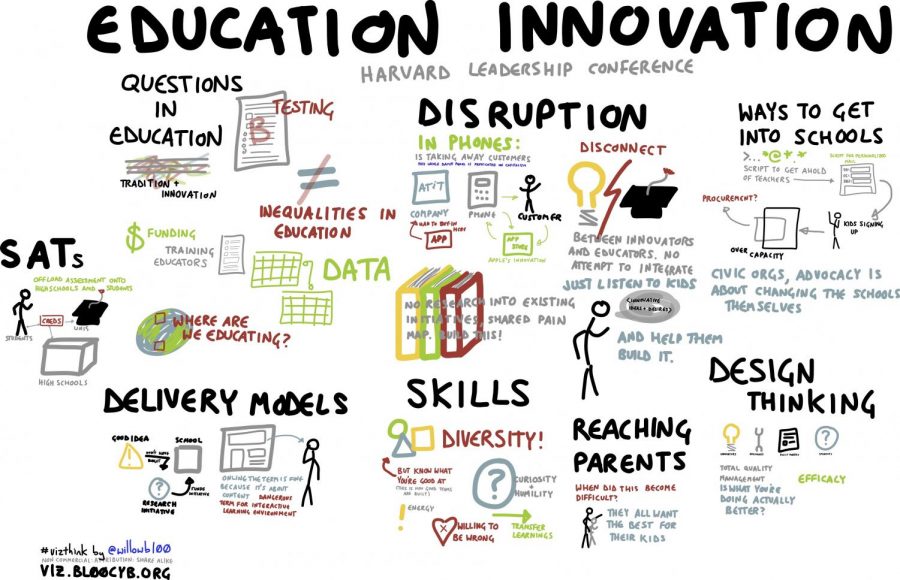 EDUCATION INNOVATION
HARVARD LEADERSHIP CONFERENCE
QUESTIONS
IN
EDUCATION
TRADITION +
INNOVATION
B
TESTING
INEQUALITIES IN
EDUCATION
$ FUNDING
TRAINING
EDUCATORS
DATA
WHERE ARE
WE EDUCATING?
SATs
OFFLOAD ASSESSMENT ONTO
HIGH SCHOOLS AND STUDENTS
CREDS
STUDENTS
UNIS
HIGH SCHOOLS
DISRUPTION
IN PHONES:
IS TAKING AWAY CUSTOMERS
AT&T
COMPANY
PHONE
CUSTOMER
HAD TO BUY IN
HERE
APP
APP
STORE
APPLE'S INNOVATION
NO RESEARCH INTO EXISTING
INITIATIVES. SHARED PAIN
MAP. BUILD THIS!
DISCONNECT
BETWEEN INNOVATORS
AND EDUCATORS. NO
ATTEMPT TO INTEGRATE
JUST LISTEN TO KIDS
(INNOVATIVE
IDEAS + DESIRES)
AND HELP THEM
BUILD IT.
WAYS TO GET
INTO SCHOOLS
>... *@**
SCRIPT FOR PERSONALIZED
MAIL
SCRIPT TO GET AHOLD
OF TEACHERS
PROCUREMENT?
KIDS SIGNING
UP
OVER
CAPACITY
CIVIC ORGS, ADVOCACY IS
ABOUT CHANGING THE SCHOOLS
THEMSELVES
DELIVERY MODELS
GOOD IDEA
SCHOOL
DOES NOT
!
?
RESEARCH
INITIATIVE
FUNDS
INITIATIVE
ONLINE THE TERM IS
BECAUSE IT'S ABOUT
CONTENT DANGEROUS
TERM FOR INTERACTIVE
LEARNING ENVIRONMENT
SKILLS
DIVERSITY!
BUT KNOW WHAT
YOU'RE GOOD AT
(THIS IS HOW GOOD TEAMS
ARE BUILT)
?
CURIOSITY
+
HUMILITY
!
ENERGY
X
WILLING TO
BE WRONG
TRANSFER
LEARNINGS
REACHING
PARENTS
WHEN DID THIS BECOME
DIFFICULT?
THEY ALL WANT
THE BEST FOR
THEIR KIDS
DESIGN
THINKING
?
TOTAL QUALITY
MANAGEMENT
IS WHAT YOU'RE
DOING ACTUALLY
BETTER?
EFFICACY
#vizthink by @willowbl00
NON COMMERCIAL. ATTRIBUTION. SHARE ALIKE
VIZ.BL00CYB.ORG